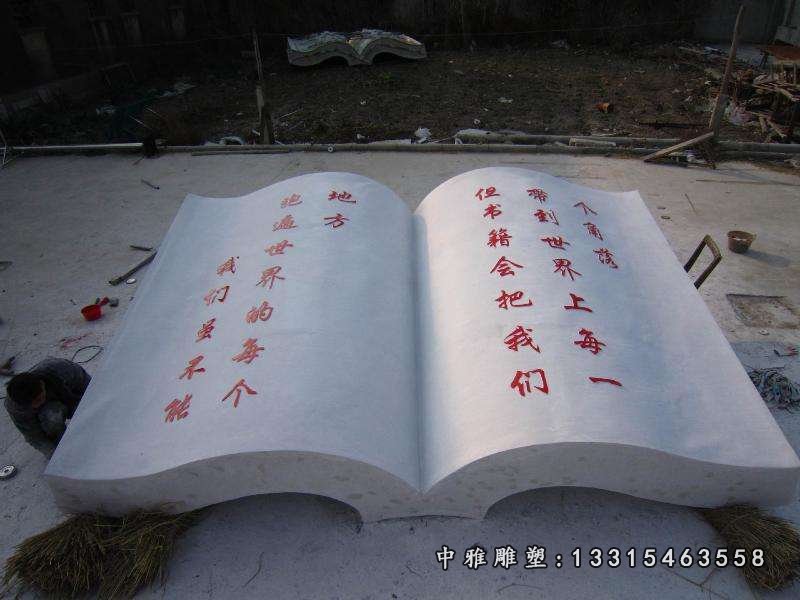 我们虽不能
跑遍世界的每个
地方
但书籍会把我们
带到世界上每一
个角落
中雅雕塑:13315463558